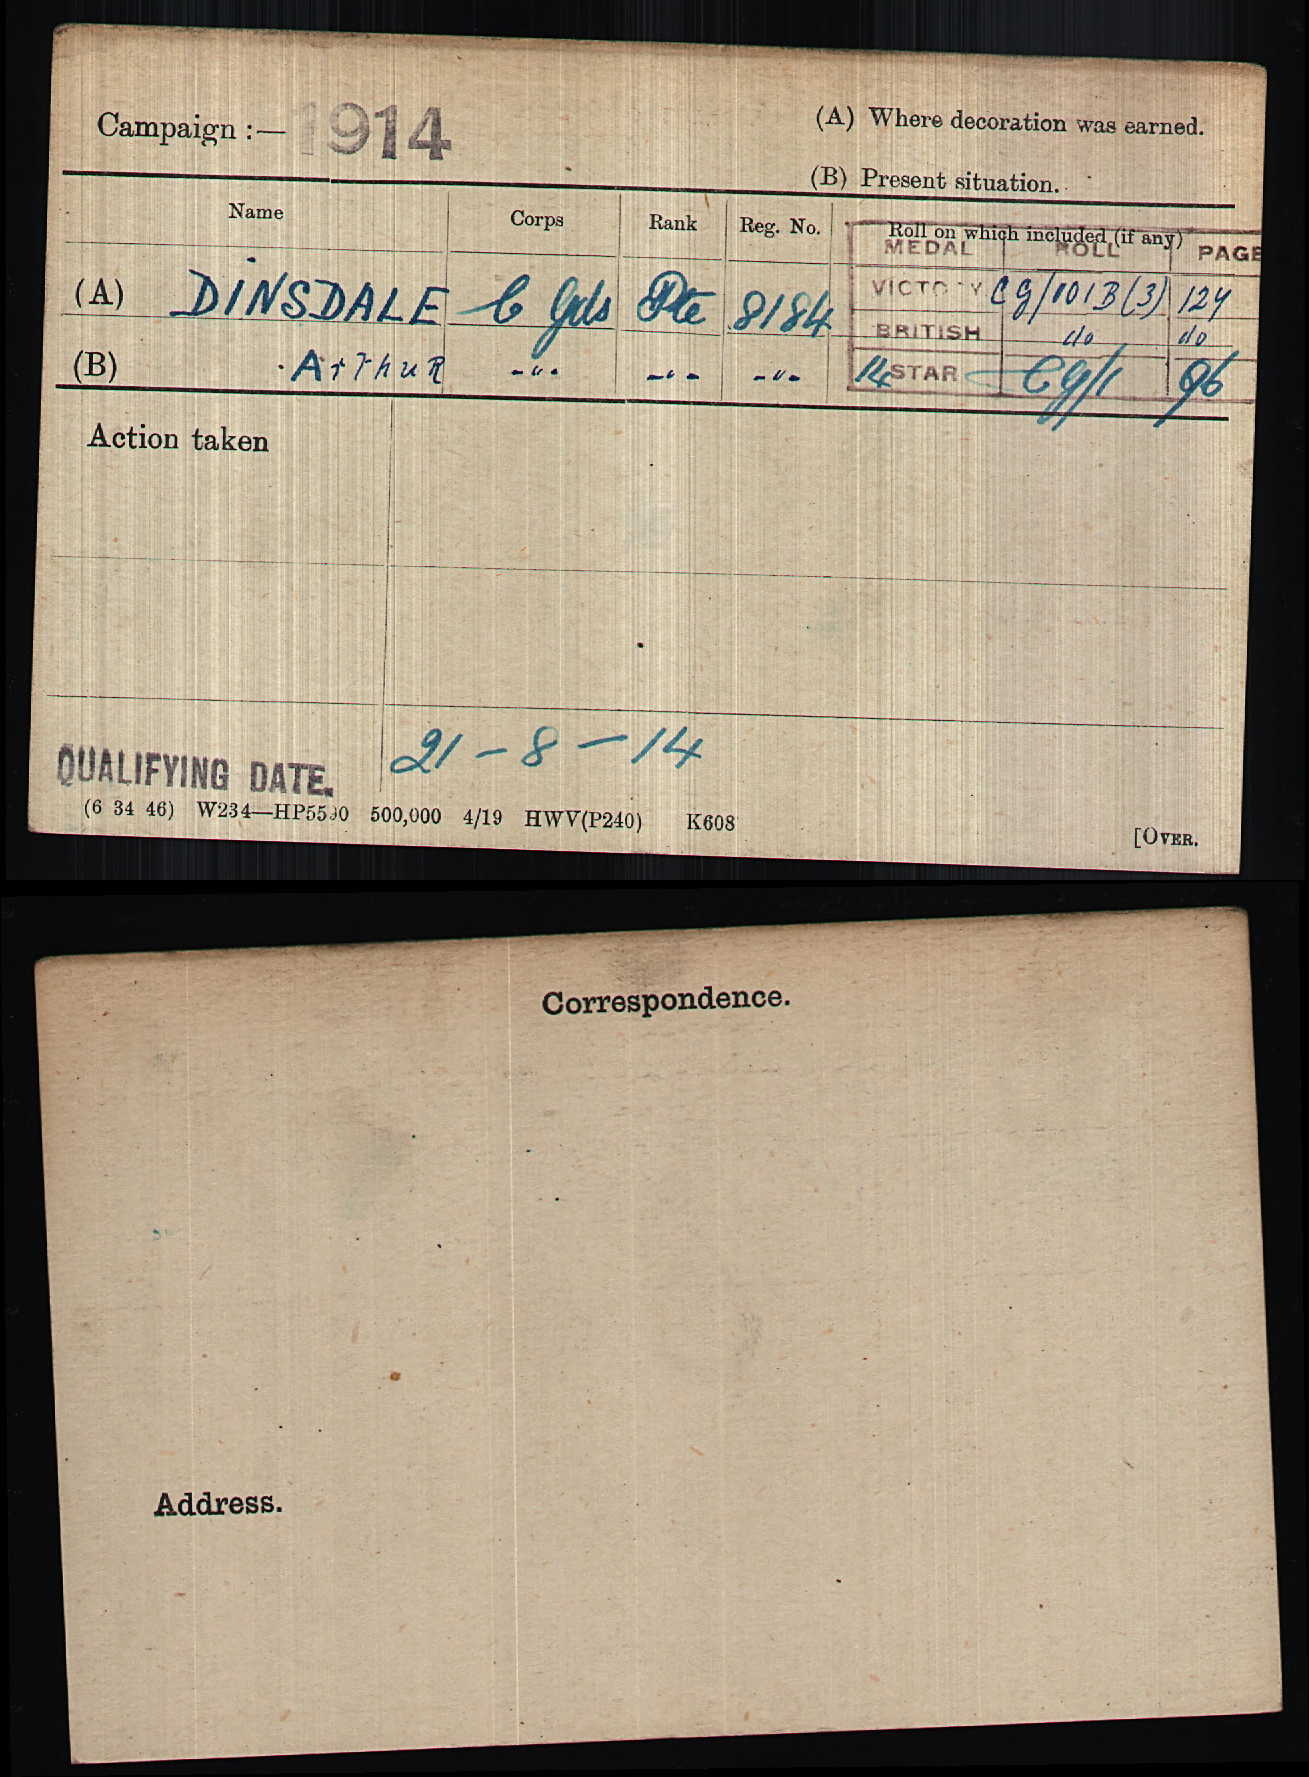 Campaign :— 1914
(A) Where decoration was earned.
(B) Present situation.
Name Corps Rank Reg. No. Roll on which included (if any)
MEDAL ROLL PAGE
(A) DINSDALE C Gds Pte 8184 VICTORY CG/101B(3) 124
BRITISH do do
(B) ArthuR -"- -"- -"- 14 STAR CG/1 96
Action taken
QUALIFYING DATE. 21-8-14
(6 34 46) W234—HP5590 500,000 4/19 HWV(P240) K608
[OVER.
Correspondence.
Address.